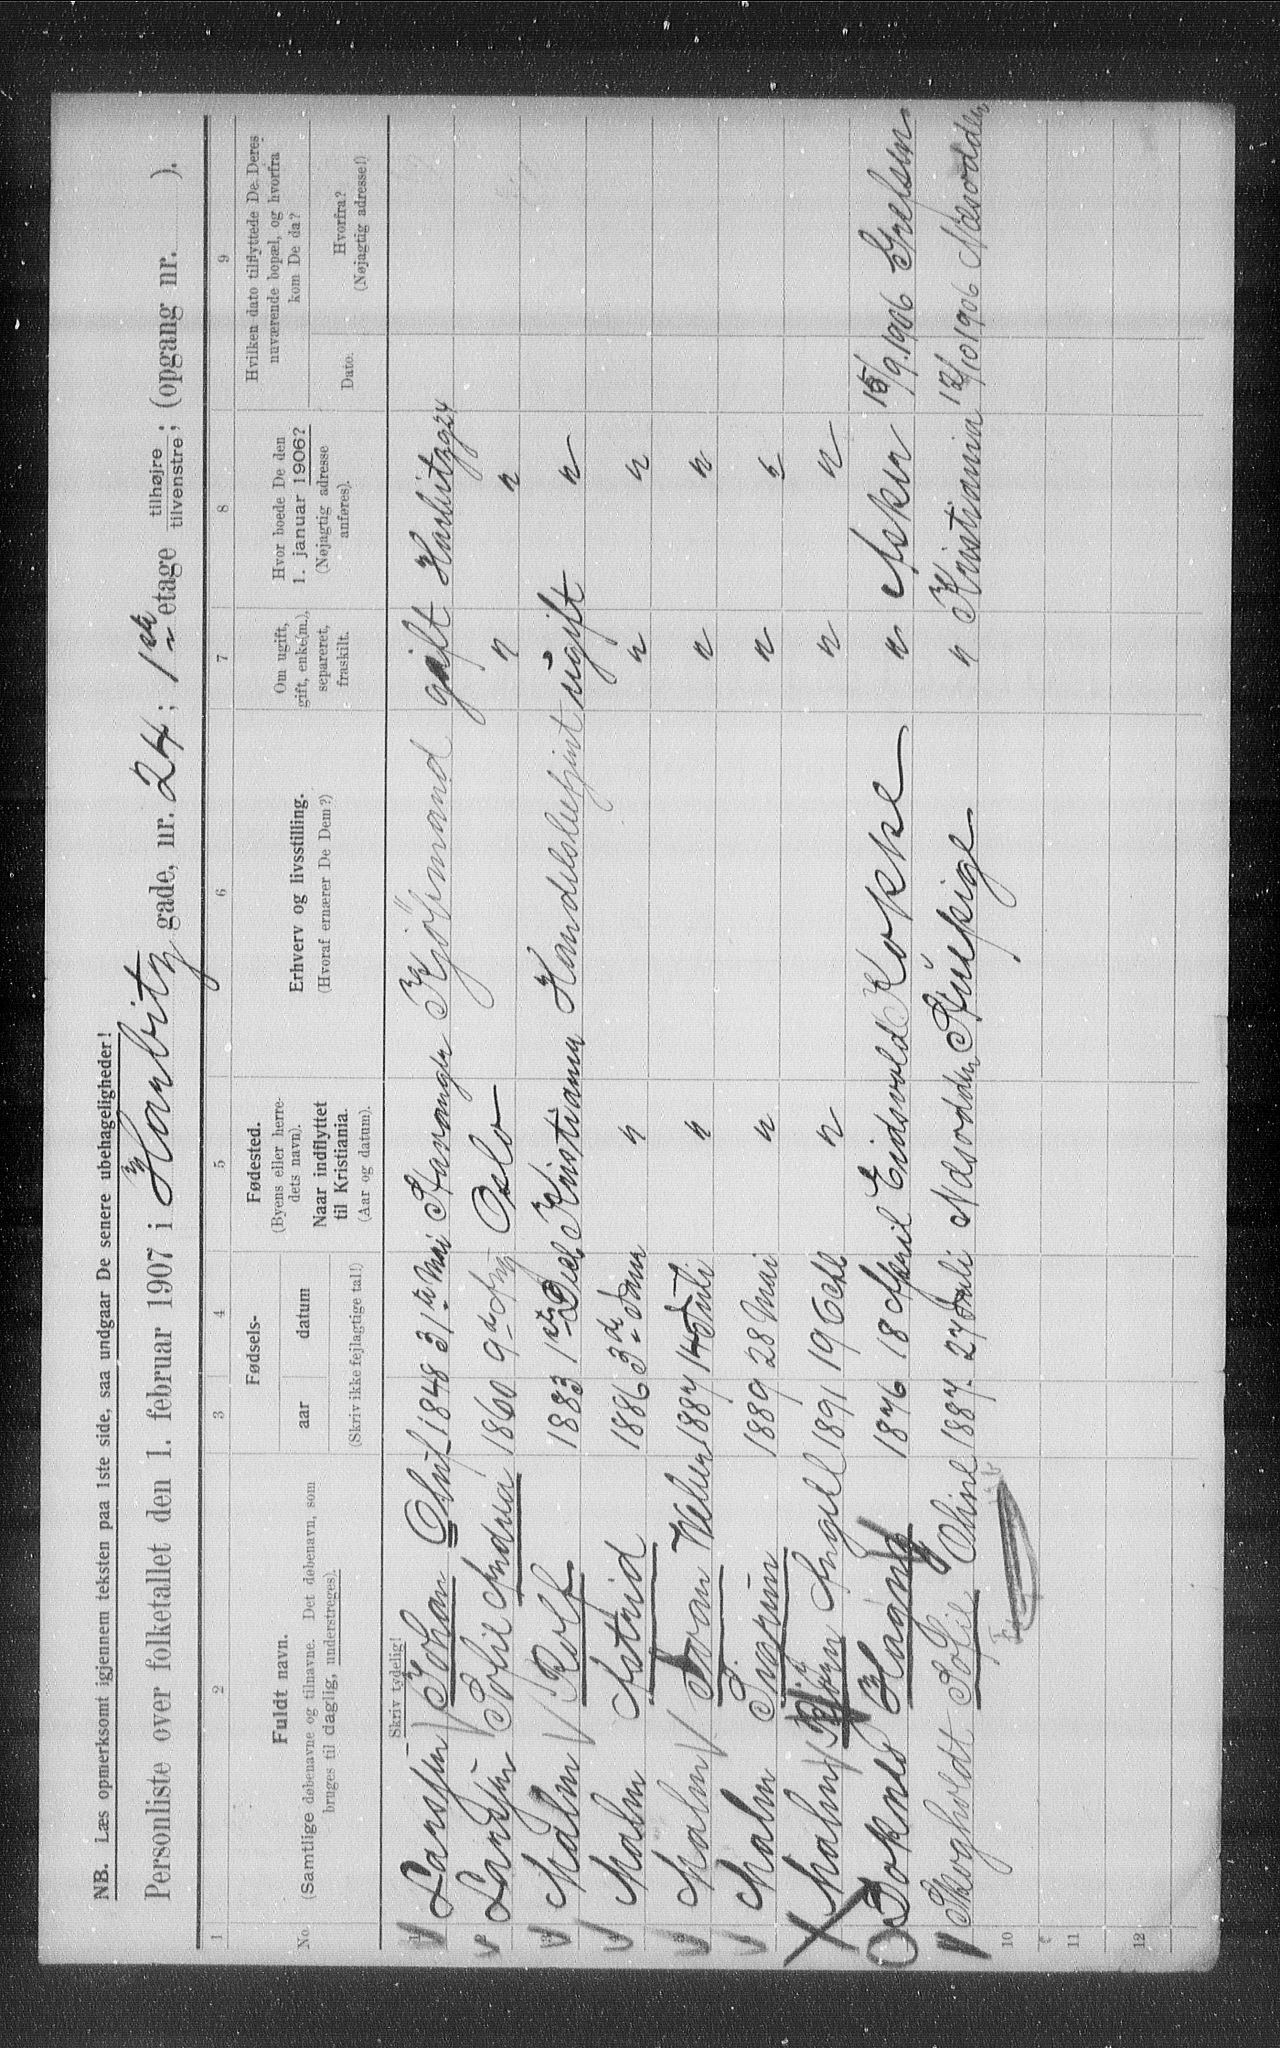 NB. Læs opmerksomt igjennem teksten paa 1ste side, saa undgaar De senere ubehageligheder!
Personliste over folketallet den 1. februar 1907 i Harbitz gade, nr. 24; 1ste etage tilhøjre tilvenstre; (opgang nr. ).
1 2 3 4 5 6 7 8 9
No.
Fuldt navn.
(Samtlige døbenavne og tilnavne. Det døbenavn, som
bruges til daglig, understreges).
Fødsels-
aar datum
(Skriv ikke fejlagtige tal!)
Fødested.
(Byens eller herre-
dets navn).
Naar indflyttet
til Kristiania.
(Aar og datum).
Erhverv og livsstilling.
(Hvoraf ernærer De Dem?)
Om ugift,
gift, enke(m.),
separeret,
fraskilt.
Hvor boede De den
1. januar 1906?
(Nøjagtig adresse
anføres).
Hvilken dato tilflyttede De Deres
nuværende bopæl, og hvorfra
kom De da?
Dato.
Hvorfra?
(Nøjagtig adresse!)
Skriv tydelig!
1 Larssen Johan Oluf 1848 31te Mai Stavanger Kjøbmand gift Harbitzg 24
2 Larssen Sofie Andrea 1860 9de Aug Oslo " "
3 Malm Rolf 1883 1ste Dec. Kristiania Handelsbetjent ugift "
4 Malm Astrid 1886 3de Janu " " "
5 Malm Ivan 1887 14 Juli " " "
Malm Sigrun 1889 28 Mai " " "
Malm Bjørn Angell 1891 19 Octb " " "
Hagna 1876 18 April Eidsvold Kokke " Asker 15/9.1906 Grefsen
Skogholdt Sofie Oline 1887. 27 Juli Næsodden Stuepige " Kristiania 12/10 1906 Næsodden
10
11
12